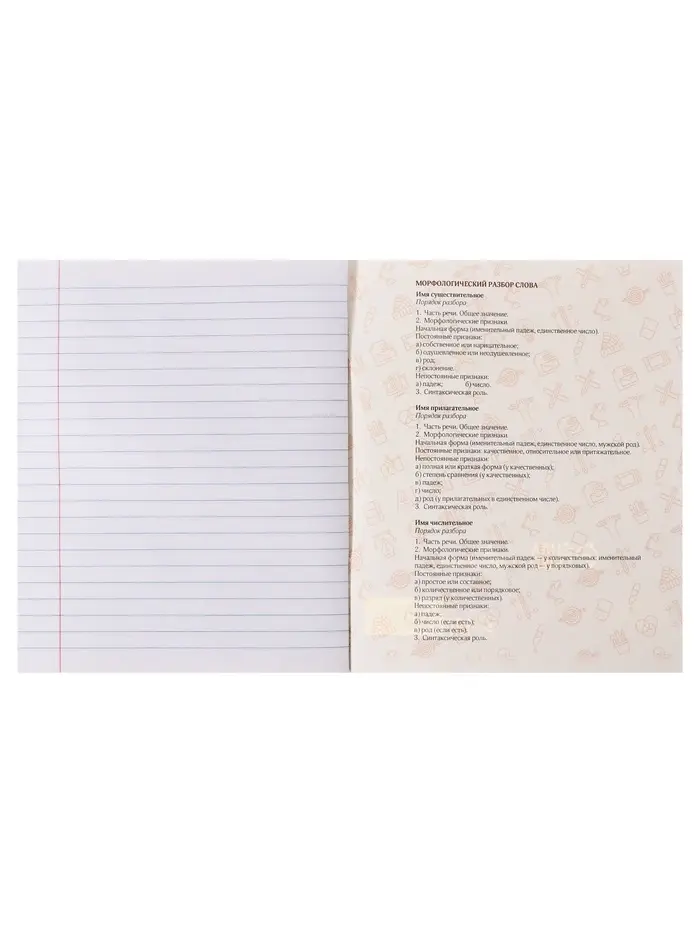 МОРФОЛОГИЧЕСКИЙ РАЗБОР СЛОВА
Имя существительное
Порядок разбора
1. Часть речи. Общее значение.
2. Морфологические признаки.
Начальная форма (именительный падеж, единственное число)
Постоянные признаки:
а) собственное или нарицательное;
б) одушевленное или неодушевленное;
в) род;
г) склонение.
Непостоянные признаки:
а) падеж; б) число.
3. Синтаксическая роль.
Имя прилагательное
Порядок разбора
1. Часть речи. Общее значение.
2. Морфологические признаки.
Начальная форма (именительный падеж, единственное число, мужской род).
Постоянные признаки: качественное, относительное или притяжательное.
Непостоянные признаки:
а) полная или краткая форма (у качественных);
б) степень сравнения (у качественных);
в) падеж;
г) число;
д) род (у прилагательных в единственном числе).
3. Синтаксическая роль.
Имя числительное
Порядок разбора
1. Часть речи. Общее значение.
2. Морфологические признаки.
Начальная форма (именительный падеж — у количественных: именительный
падеж, единственное число, мужской род — у порядковых).
Постоянные признаки:
а) простое или составное;
б) количественное или порядковое;
в) разряд (у количественных).
Непостоянные признаки:
а) падеж.
б) число (если есть);
в) род (если есть).
3. Синтаксическая роль.